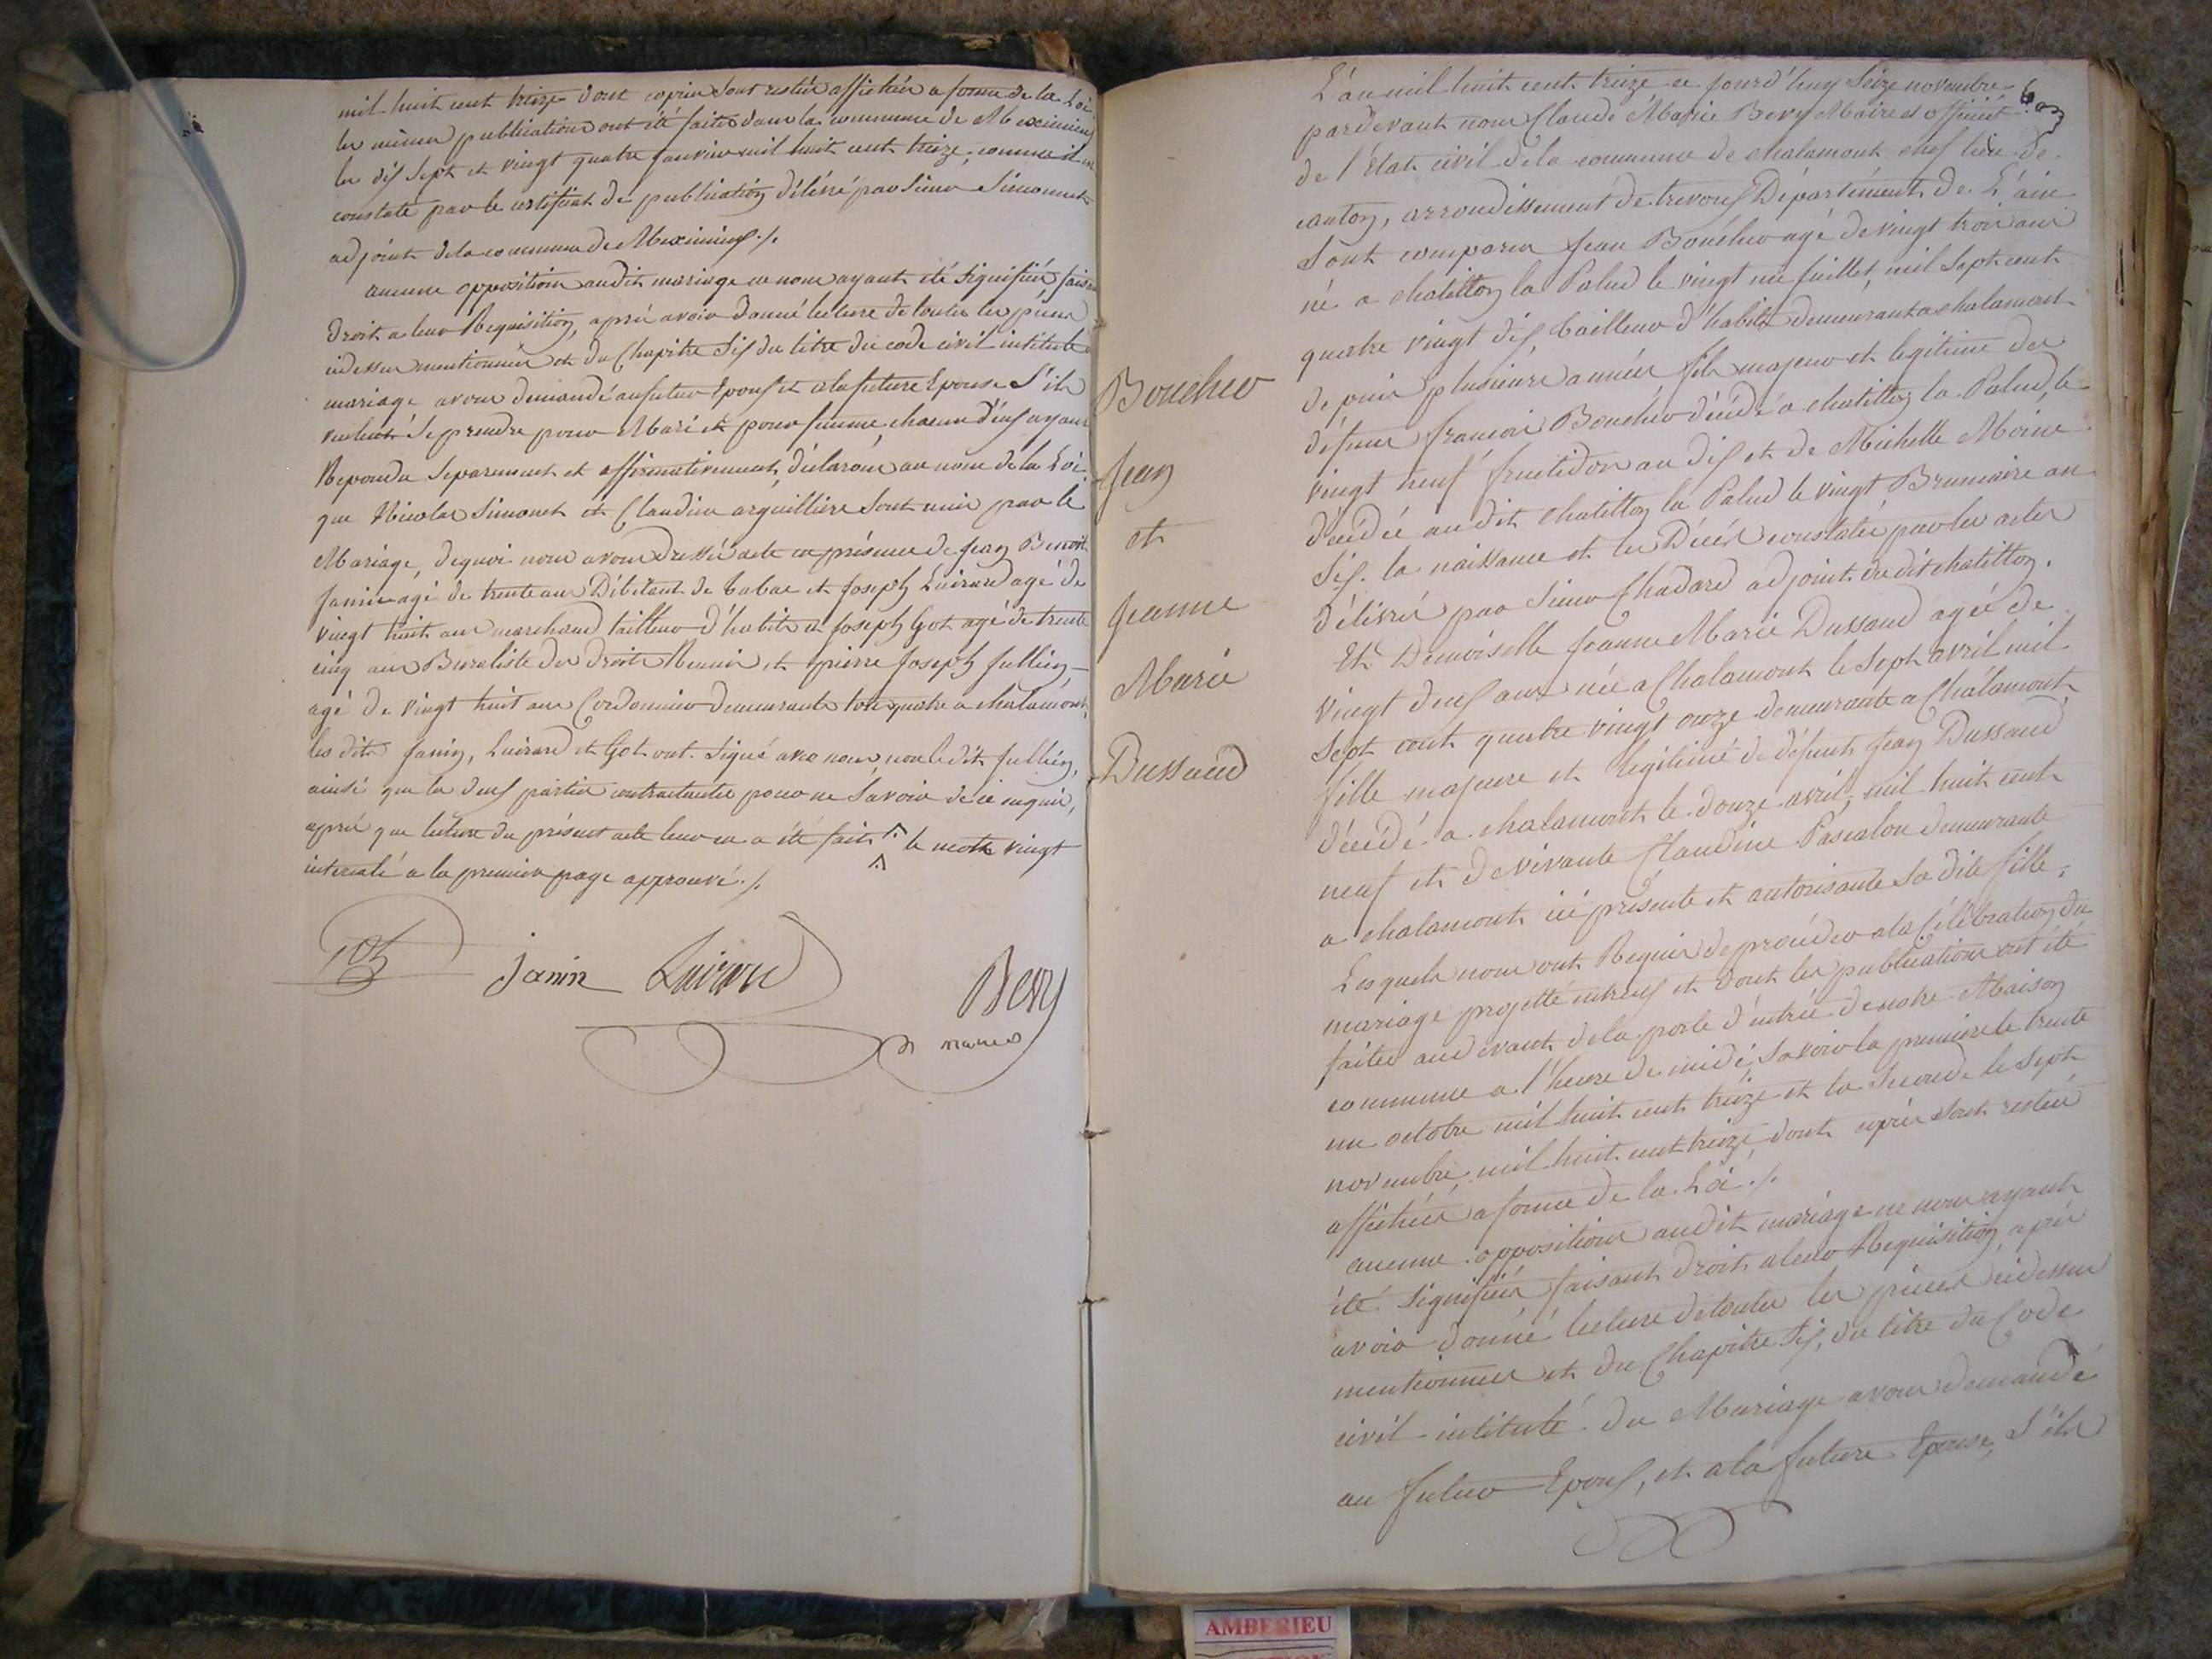 mil huit cent treize dont copies sont restées affichées a forme de la Loi
les mêmes publications ont été faites dans la commune de Meximieux
les dix sept et vingt quatre janvier mil huit cent treize, comme il est
constaté par le certificat de publication délivré par sieur Simonet
adjoint de la commune de Meximieux ./.
aucune opposition audit mariage ne nous ayant été signifiée, faisant
droit a leur Requisition, après avoir donné lecture de toutes les pièces
cidessus mentionnées et du Chapitre six du titre du code civil intitulé
mariage avons demandé au futur Epoux et a la future Epouse S'ils
veulent se prendre pour Mari et pour femme, chacun d'eux ayant
Repondu Separement et affirmativement, déclarons au nom de la Loi
que Nicolas Simonet et Claudine arguilliere Sont unis par le
Mariage, dequoi nous avons dressé acte en présence de Jean Benoit
Janin agé de trente ans Débitant de tabac et Joseph Luirard agé de
vingt huit ans marchand tailleur d'habits et Joseph Got agé de trente
cinq ans Buraliste des droits Réunis et pierre Joseph Jullien
agé de vingt huit ans Cordonnier demeurants tous quatre a chalamont,
les dits Janin, Luirard et Got ont Signé avec nous, non ledit Jullien,
ainsi que les deux parties contractantes pour ne Savoir de ce enquis,
après que lecture du présent acte leur en a été faite ^. le mot vingt
intercalé a la premiere page approuvé ./.
Got Janin Luirard Bery
maire
6
L'an mil huit cent treize ce jourd'huy Seize novembre
pardevant nous Claude Marie Bery Maire et officier
de l'Etat civil de la commune de chalamont chef lieu de
canton, arrondissement de trevoux Département de L'ain
Sont comparus Jean Boucher agé de vingt trois ans
né a chatillon la Palud le vingt un juillet, mil Sept cent
quatre vingt dix, tailleur d'habits demeurant a chalamont
depuis plusieurs années fils majeur et legitime des
défunts françois Boucher décédé a chatillon la Palud, le
vingt neuf fructidor an dix et de Michelle Moine
décédée audit chatillon la Palud le vingt Brumaire an
Six. la naissance et les Décès constatés par les actes
délivrés par Sieur Chadard adjoint dudit chatillon.
Et Demoiselle Jeanne Marie Dussaud agée de
vingt deux ans née a Chalamont le Sept avril mil
Sept cent quatre vingt onze demeurante a Chalamont
fille majeure et legitime de défunt Jean Dussaud
décédé a chalamont le douze avril, mil huit cent
neuf et de vivante Claudine Pascalon demeurante
a chalamont ici présente et autorisante Sa dite fille,
Lesquels nous ont Requis de procéder a la Célébration du
mariage projetté entreux et dont les publications ont été
faites audevant de la porte d'entrée de notre Maison
commune a l'heure de midi, Savoir la premiere le trente
un octobre mil huit cent treize et la Seconde le Sept
novembre, mil huit cent treize, dont copies Sont restées
affichées a forme de la Loi ./.
aucune opposition audit mariage ne nous ayant
été Signifiée faisant droit a leur Requisition, après
avoir donné lecture de toutes les pièces cidessus
mentionnées et du Chapitre Six, du titre du Code
civil intitulé du Mariage avons demandé
au futur Epoux, et a la future Epouse, S'ils
Boucher
Jean
et
Jeanne
Marie
Dussaud
AMBERIEU